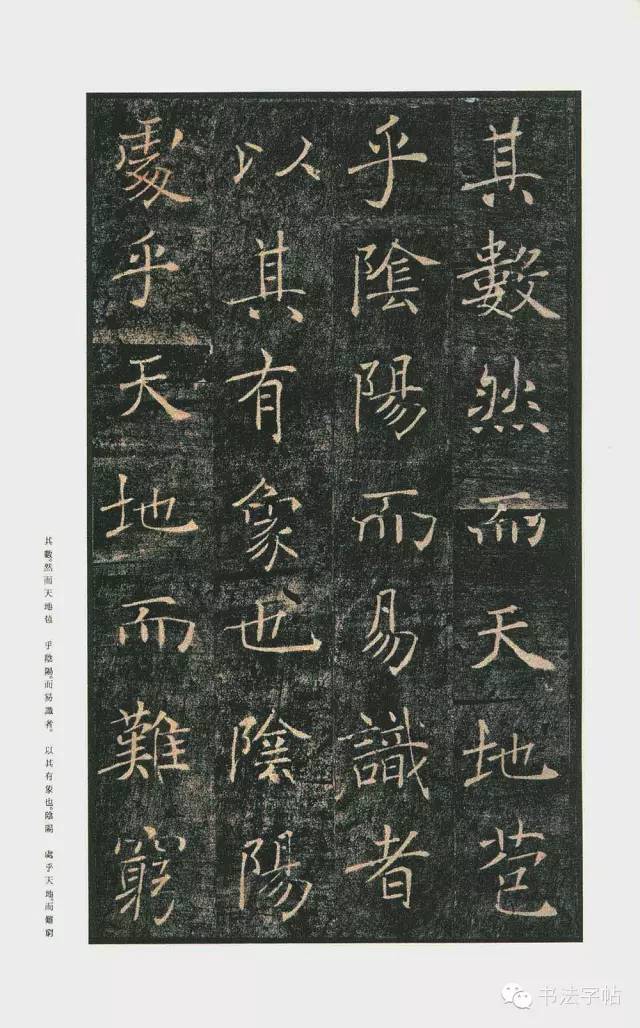 其數然而天地苞
乎陰陽而易識者
以其有象也陰陽
處乎天地而難窮
其數。然而天地苞　乎陰陽。而易識者。　以其有象也。陰陽　處乎天地。而難窮
书法字帖